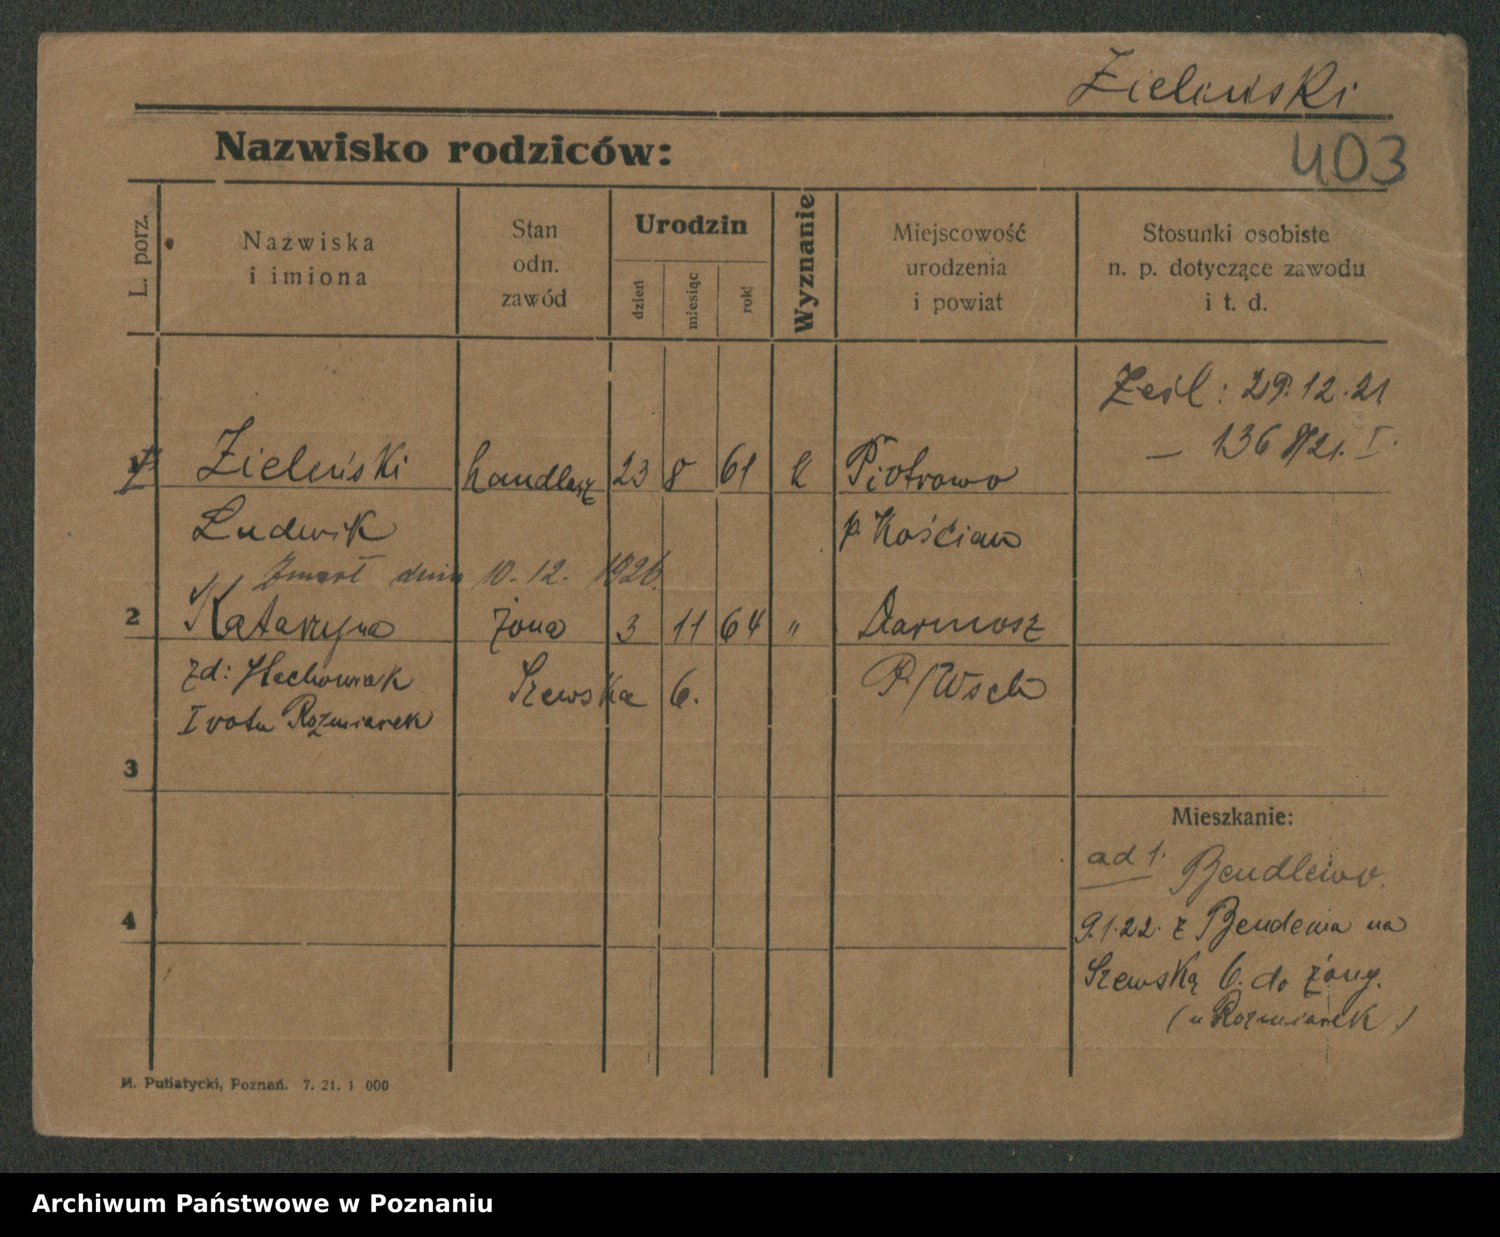 Zieliński
403
Nazwisko rodziców:
L. porz.
Nazwiska
i imiona
Stan
odn.
zawód
Urodzin
dzień
miesiąc
rok
Wyznanie
Miejscowość
urodzenia
i powiat
Stosunki osobiste
n. p. dotyczące zawodu
i t. d.
29.12.21
Zieliński handlarz 23 8 61 k Piotrowo
Ludwik p. Kościan
Zmarł dnia 10. 12. 1926
2 Katarzyna żona 3 11 64 "
zd: Szewska 6.
I voto Rozmiarek
3
Mieszkanie:
ad 1. Bendlewo.
4
9.1.22. z na
Szewską 6. do żony.
(u Rozmiarek)
M. Putiatycki, Poznań. 7. 21. 1 000
Archiwum Państwowe w Poznaniu